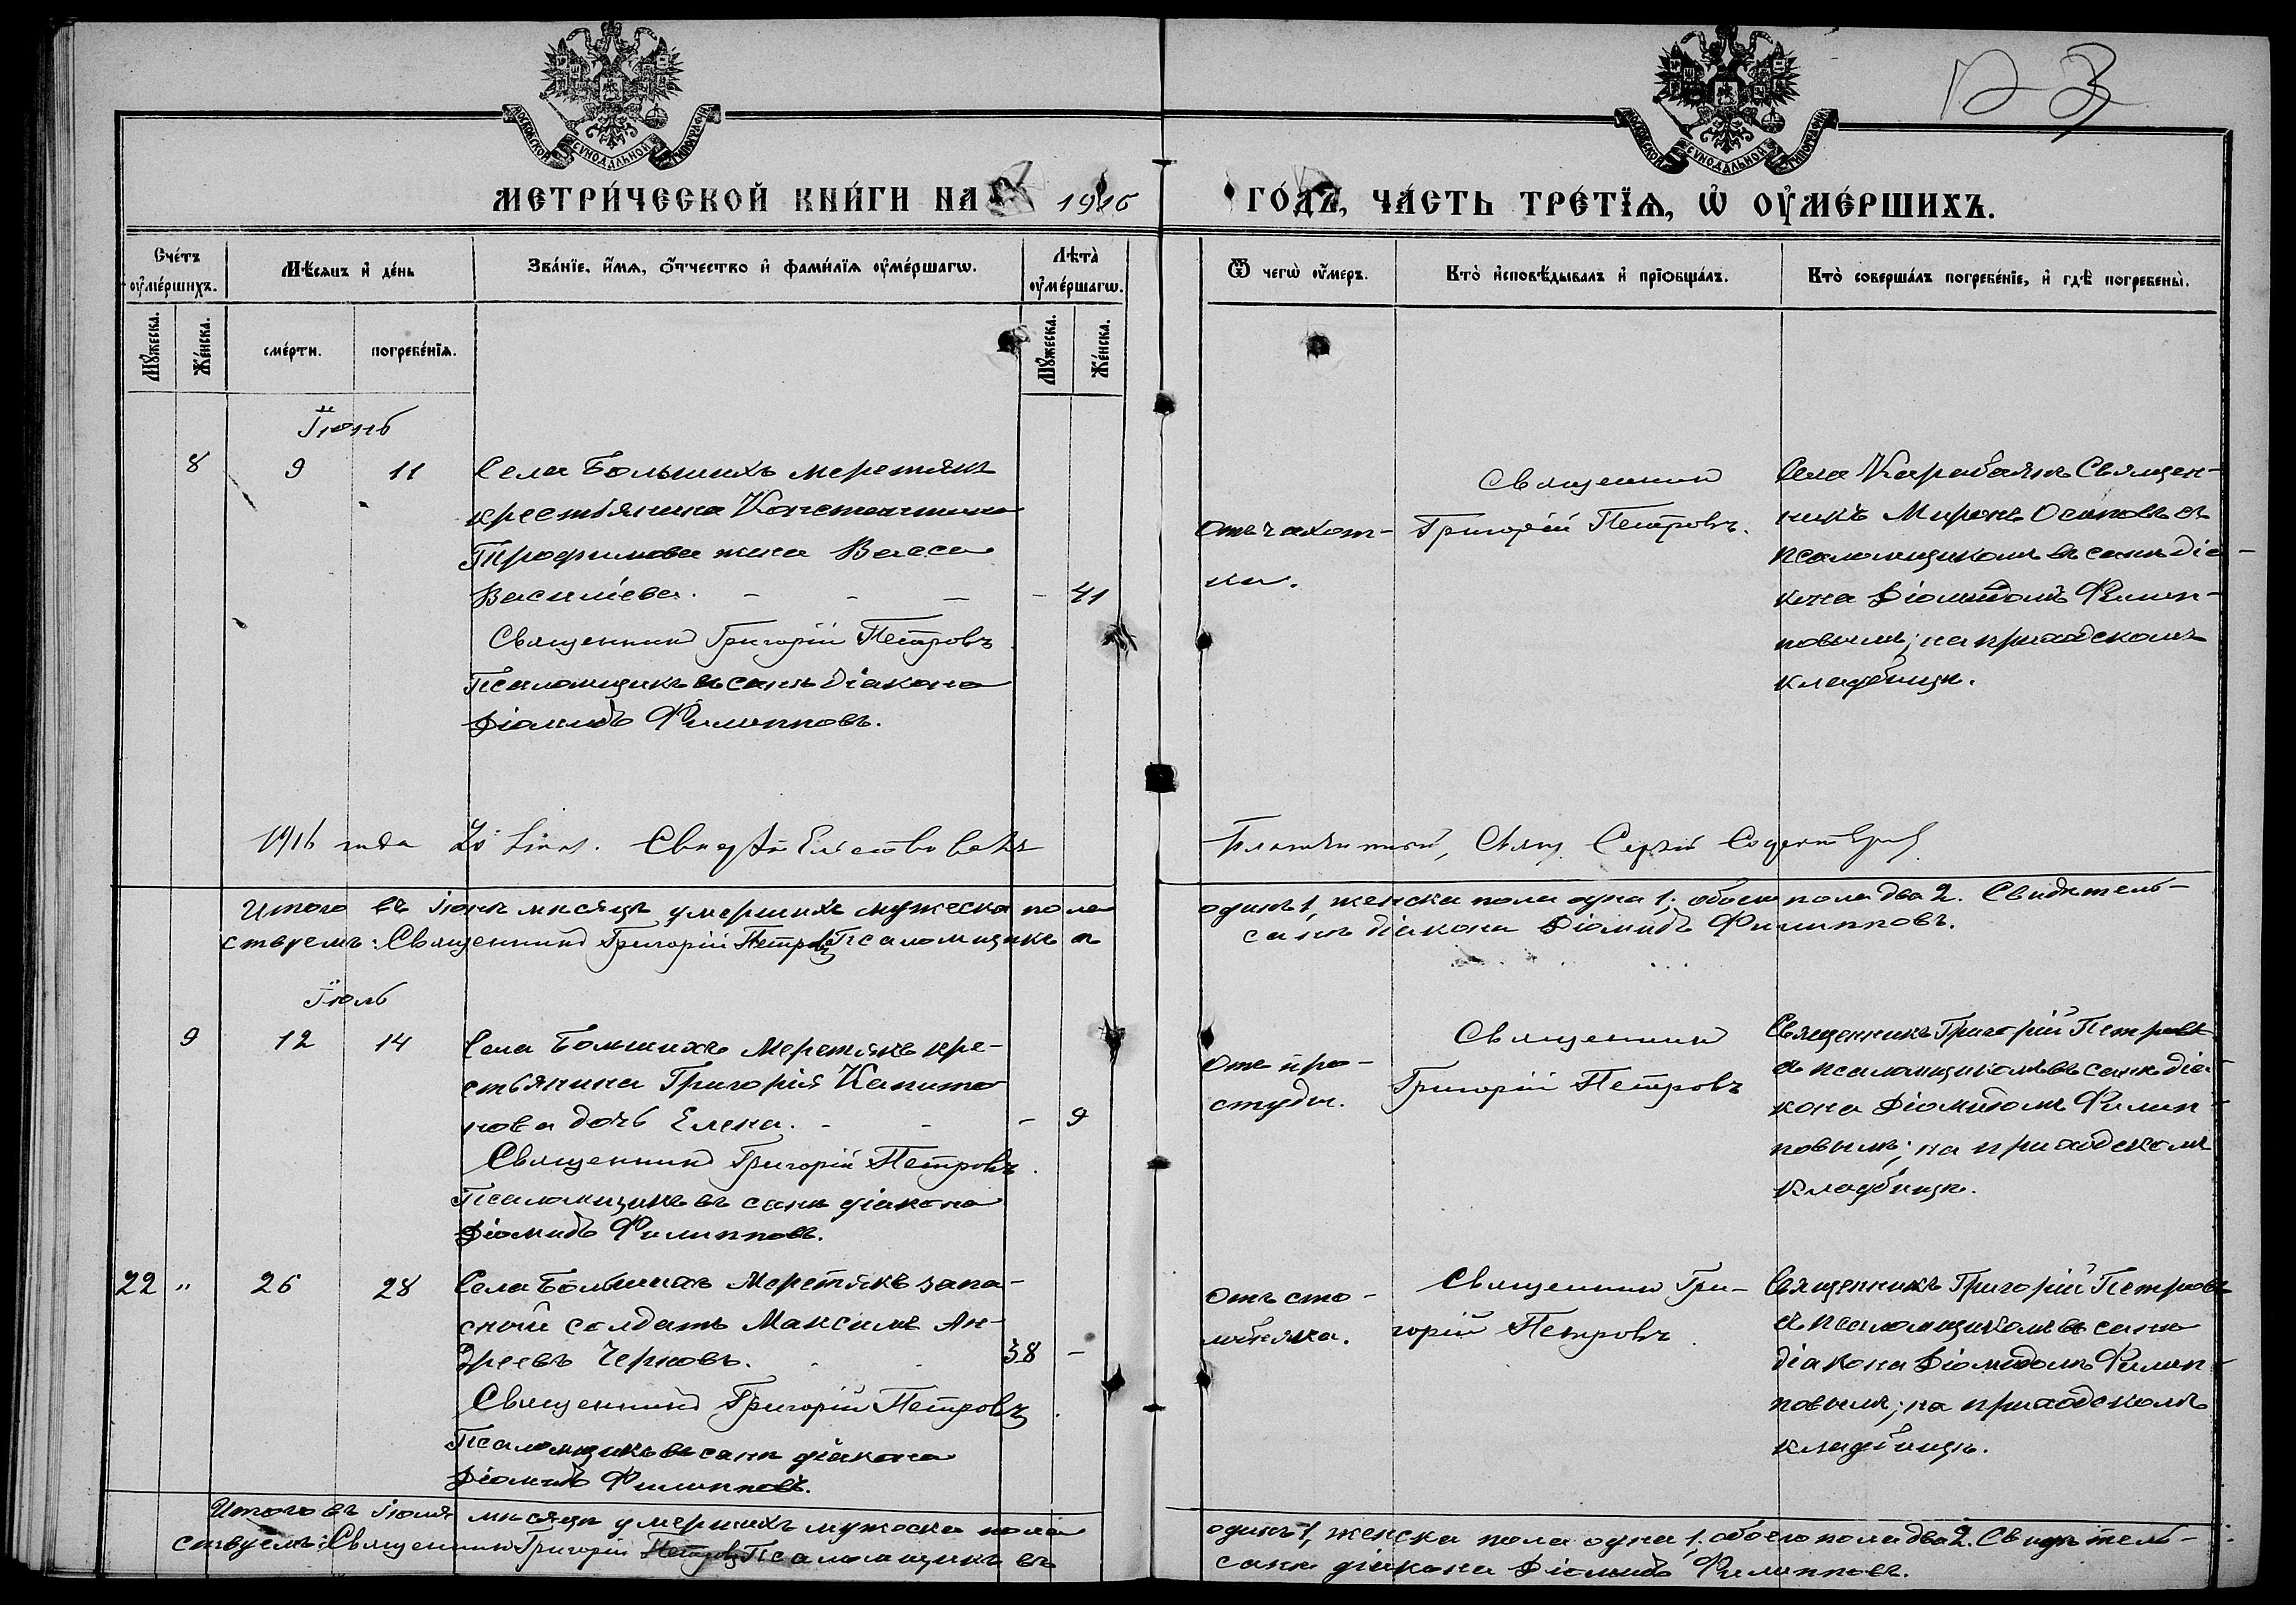 МОСКОВСКОЙ СѴНОДАЛЬНОЙ ТИПОГРАФІИ
МОСКОВСКОЙ СѴНОДАЛЬНОЙ ТИПОГРАФІИ
МЕТРИ́ЧЕСКОЙ КНИ́ГИ НА 1916 ГО́ДЪ, ЧА́СТЬ ТРЕ́ТЇѦ, Ѽ ОУ҆МЕ́РШИХЪ.
Сче́тъ оу҆ме́ршихъ.
Мѣ́сяцъ и҆ де́нь
Зва́нїе, и҆́мѧ, о҆́тчество и҆ фами́лїѧ оу҆ме́ршагѡ.
Лѣта̀ оу҆ме́ршагѡ.
Ѿ чегѡ̀ оу҆́меръ.
Кто̀ и҆сповѣ́дывалъ и҆ прїѡбща́лъ.
Кто̀ соверша́лъ погребе́нїе, и҆ гдѣ̀ погребены̀.
Мꙋ́жеска.
Же́нска.
сме́рти.
погребе́нїѧ.
Мꙋ́жеска.
Же́нска.
Іюнь
8 9 11 Села Большихъ меретякъ
крестьянина Константина
Трофимова жена Васса
Васильева. - - - - 41
Священникъ Григорій Петровъ.
Псаломщикъ въ санѣ діакона
Діомидъ Филипповъ.
Отъ чахот-
ки.
Священникъ
Григорій Петровъ.
Села Карабаянъ Священ-
никъ Миронъ Осиповъ съ
псаломщикомъ въ санѣ діа-
кона Діомидомъ Филип-
повымъ; на приходскомъ
кладбищѣ.
1916 года
Свидѣтельствовалъ
Благочинный, Свящ. Сергій
Итого въ іюнѣ мѣсяцѣ умершихъ мужеска пола одинъ 1, женска пола одна 1; обоего пола два 2. Свидѣтель-
ствуемъ: Священникъ Григорій Петровъ Псаломщикъ въ санѣ діакона Діомидъ Филипповъ.
Іюль
9 12 14 Села Большихъ Меретякъ кре-
стьянина Григорія Капито
нова дочь Елена. - - - 9
Священникъ Григорій Петровъ.
Псаломщикъ въ санѣ діакона
Діомидъ Филипповъ.
Отъ про-
студы.
Священникъ
Григорій Петровъ
Священникъ Григорій Петровъ
съ псаломщикомъ въ санѣ діа-
кона Діомидомъ Филип-
повымъ; на приходскомъ
кладбищѣ.
22 " 26 28 Села Большихъ Меретякъ запа-
сный солдатъ Максимъ Ан-
дреевъ Черновъ. 38 -
Священникъ Григорій Петровъ.
Псаломщикъ въ санѣ діакона
Діомидъ Филипповъ.
Отъ сто-
лбняка.
Священникъ Гри-
горій Петровъ.
Священникъ Григорій Петровъ
съ псаломщикомъ въ санѣ
діакона Діомидомъ Филип-
повымъ; на приходскомъ
кладбищѣ.
Итого въ іюлѣ мѣсяцѣ умершихъ мужеска пола одинъ 1, женска пола одна 1; обоего пола два 2. Свидѣтель-
ствуемъ: Священникъ Григорій Петровъ Псаломщикъ въ санѣ діакона Діомидъ Филипповъ.